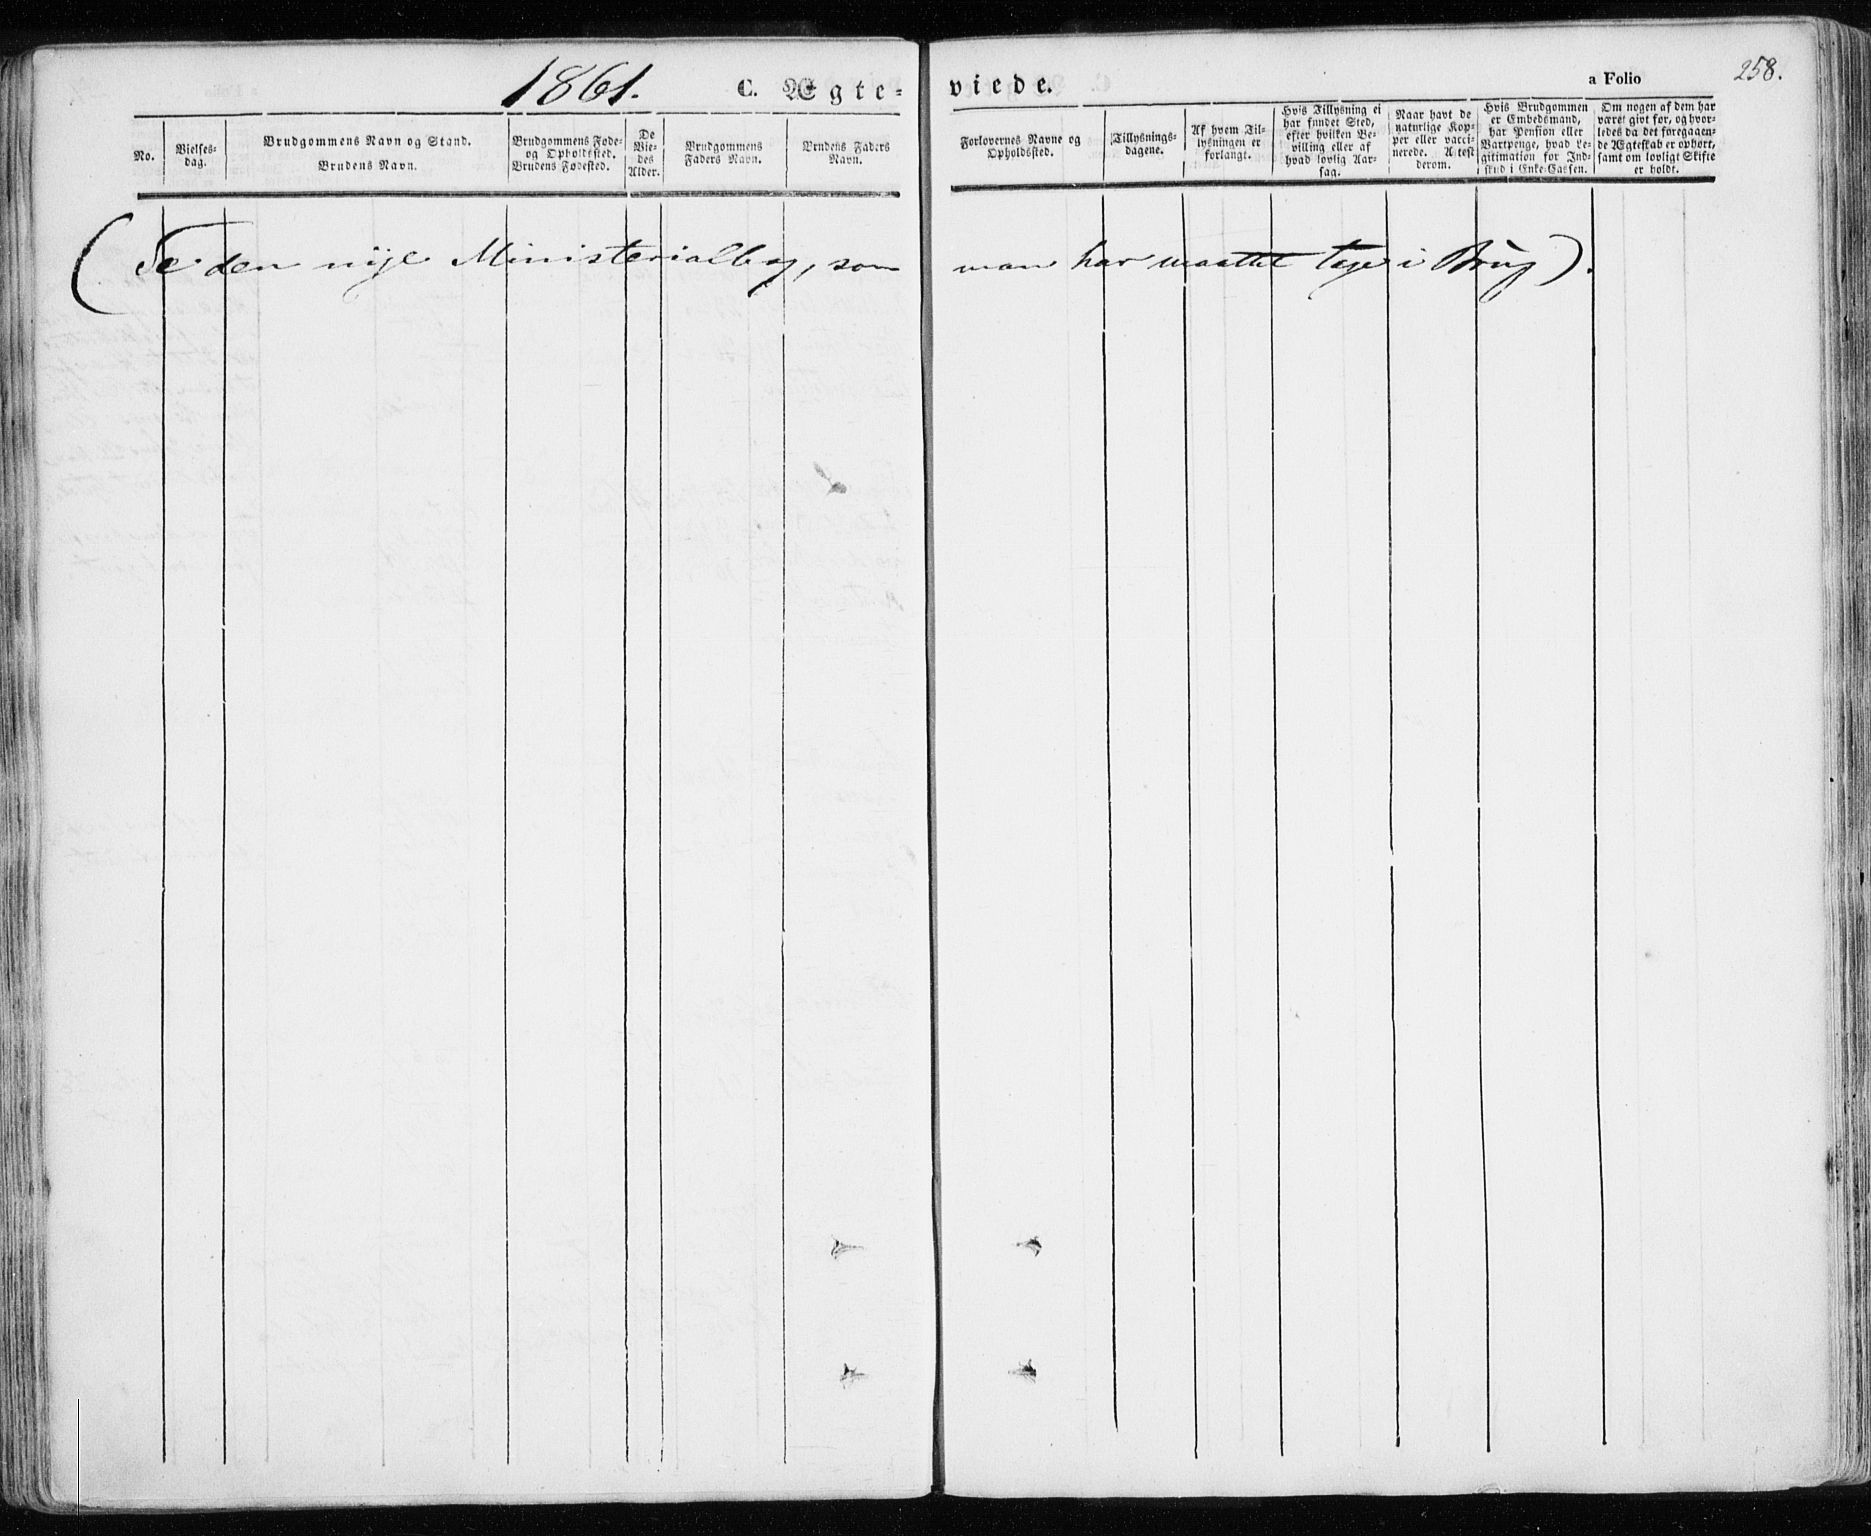 1861. C. Ægte- viede. a Folio 258.
No.
Vielses-
dag.
Brudgommens Navn og Stand.
Brudens Navn.
Brudgommens Føde-
og Opholdssted.
Brudens Fødested.
De
Vie-
des
Alder.
Brudgommens
Faders Navn.
Brudens Faders
Navn.
Forlovernes Navne og
Opholdssted.
Tillysnings-
dagene.
Af hvem Til-
lysningen er
forlangt.
Hvis Tillysning ei
har fundet Sted,
efter hvilken Be-
villing eller af
hvad lovlig Aar-
sag.
Naar havt de
naturlige Kop-
per eller vacci-
nerede. Attest
derom.
Hvis Brudgommen
er Embedsmand,
har Pension eller
Vartpenge, hvad Le-
gitimation for Ind-
skud i Enke-Cassen.
Om nogen af dem har
været givt før, og hvor-
ledes da det foregaaen-
de Ægteskab er ophørt,
samt om lovligt Skifte
er holdt.
(Se den nye Ministerialbog, som man har maattet tage i Brug).